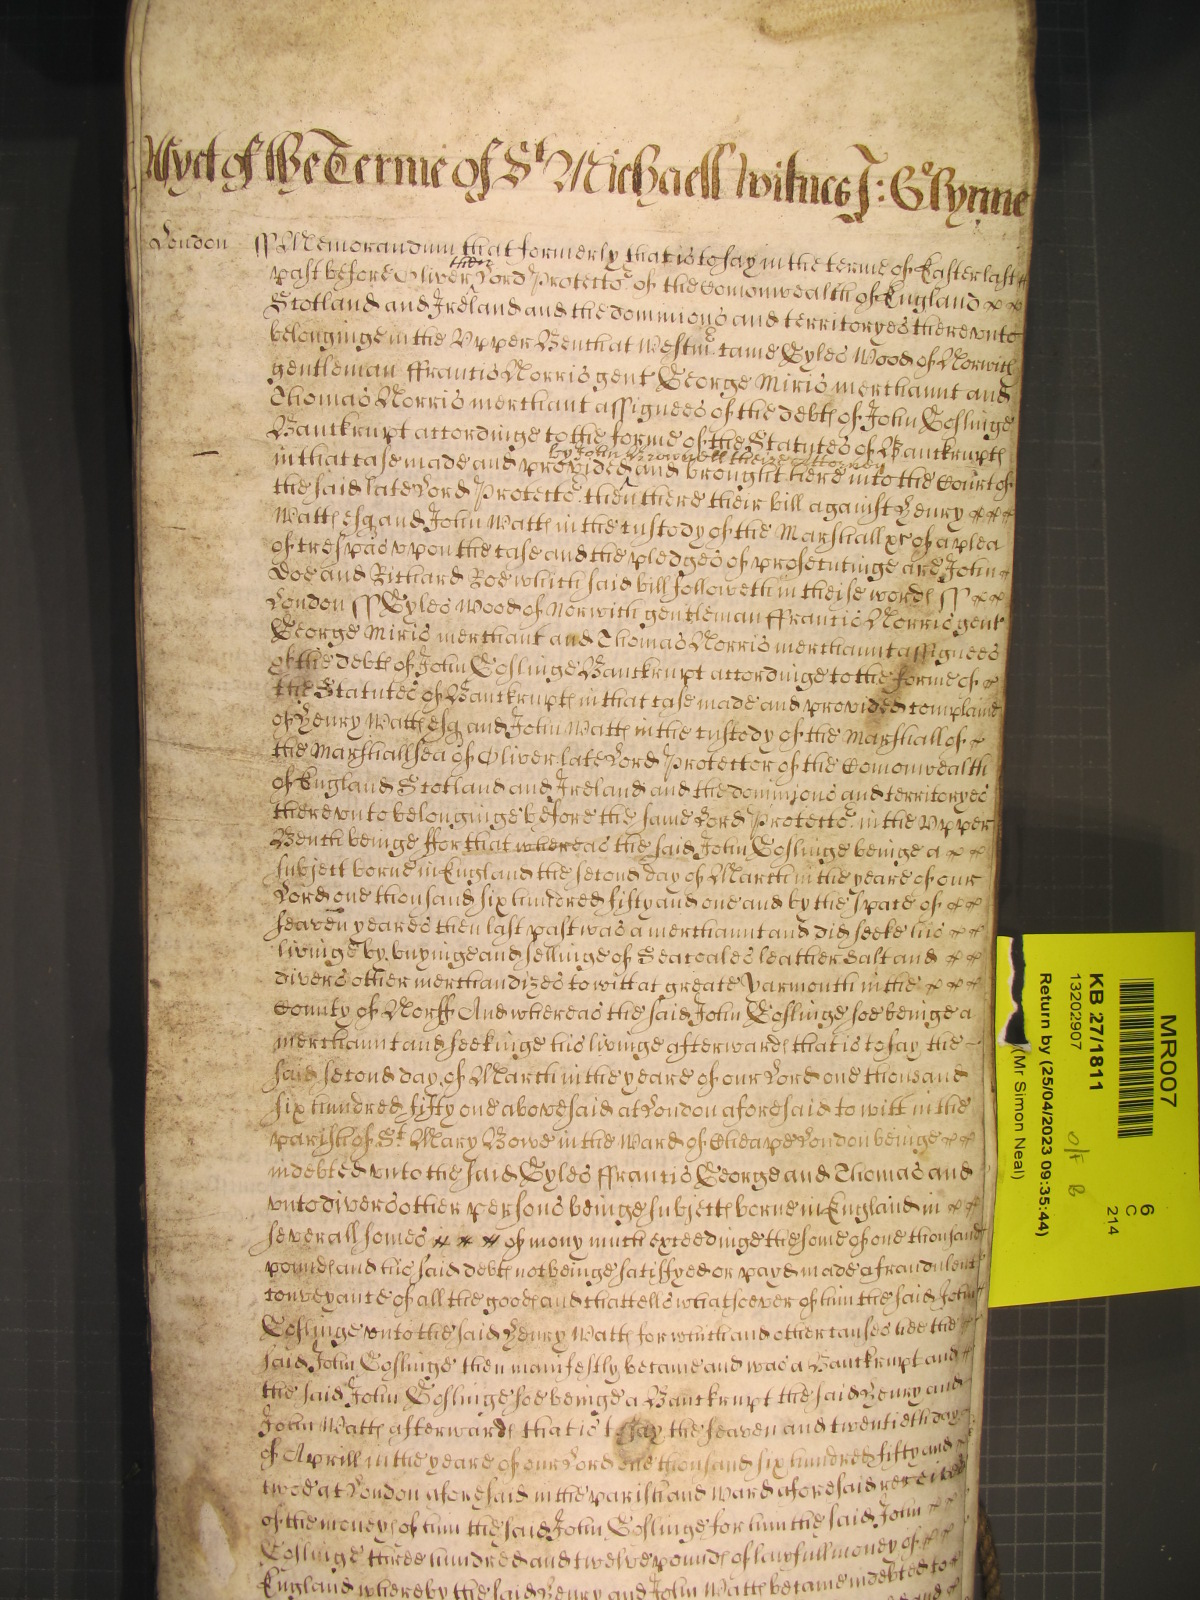 Yet of the Terme of St Michaell witnes J: Glynne
London ss Memorandum that formerly that is to say in the terme of Easter last
past before Oliver then Lord Protector of the Comonwealth of England
Scotland and Ireland and the dominions and territoryes therevnto
belonginge in the Vpper Bench at Westmr came Gyles Wood of Norwich
gentleman ffrancis Norris gent George Miris merchaunt and
Thomas Norris merchant assignees of the debts of John Goslinge
Banckrupt accordinge to the forme of the Statutes of Banckrupts
in that case made and provided by John Brownell their Attorney and brought here into the Court of
the said late Lord Protector then there their bill against Henry
Watts esq and John Watts in the custody of the Marshall &c of a plea
of trespas vpon the case and the pledges of prosecutinge are John
Doe and Richard Roe which said bill followeth in theise words ss
London ss Gyles Wood of Norwich gentleman ffrancis Norris gent
George Miris merchant and Thomas Norris merchaunt assignees
of the debts of John Goslinge Banckrupt accordinge to the forme of
the Statutes of Banckrupts in that case made and provided complaine
of Henry Watts esq and John Watts in the custody of the Marshall of
the Marshallsea of Oliver late Lord Protector of the Comonwealth
of England Scotland and Ireland and the dominions and territoryes
therevnto belonginge before the same Lord Protector in the Vpper
Bench beinge ffor that whereas the said John Goslinge beinge a
subject borne in England the second day of March in the yeare of our
Lord one thousand six hundred fifty and one and by the space of
seaven yeares then last past was a merchaunt and did seeke his
livinge by buyinge and sellinge of Seacoales leather Salt and
divers other merchandizes to witt at greate Yarmouth in the
County of Norff And whereas the said John Goslinge soe beinge a
merchaunt and seekinge his livinge afterwards that is to say the
said second day of March in the yeare of our Lord one thousand
six hundred fifty one abovesaid at London aforesaid to witt in the
parish of St Mary Bowe in the Ward of Cheape London beinge
indebted vnto the said Gyles ffrancis George and Thomas and
vnto divers other persons beinge subjects borne in England in
severall somes of mony much exceedinge the some of one thousand
pounds and his said debts not beinge satisfyed or payd made a fraudulent
conveyance of all the goods and chattells whatsoever of him the said John
Goslinge vnto the said Henry Watts for which and other causes hee the
said John Goslinge then manifestly became and was a Banckrupt and
the said John Goslinge soe beinge a Banckrupt the said Henry and
John Watts afterwards that is to say the seaven and twentieth day
of Aprill in the yeare of our Lord one thousand six hundred fifty and
twoe at London aforesaid in the parish and Ward aforesaid received
of the moneys of him the said John Goslinge for him the said John
Goslinge three hundred and twelve pounds of lawfull money of
England whereby the said Henry and John Watts became indebted to
MR007
6
C
214
KB 27/1811
13202907
Return by (25/04/2023 09:35:44)
(Mr Simon Neal)